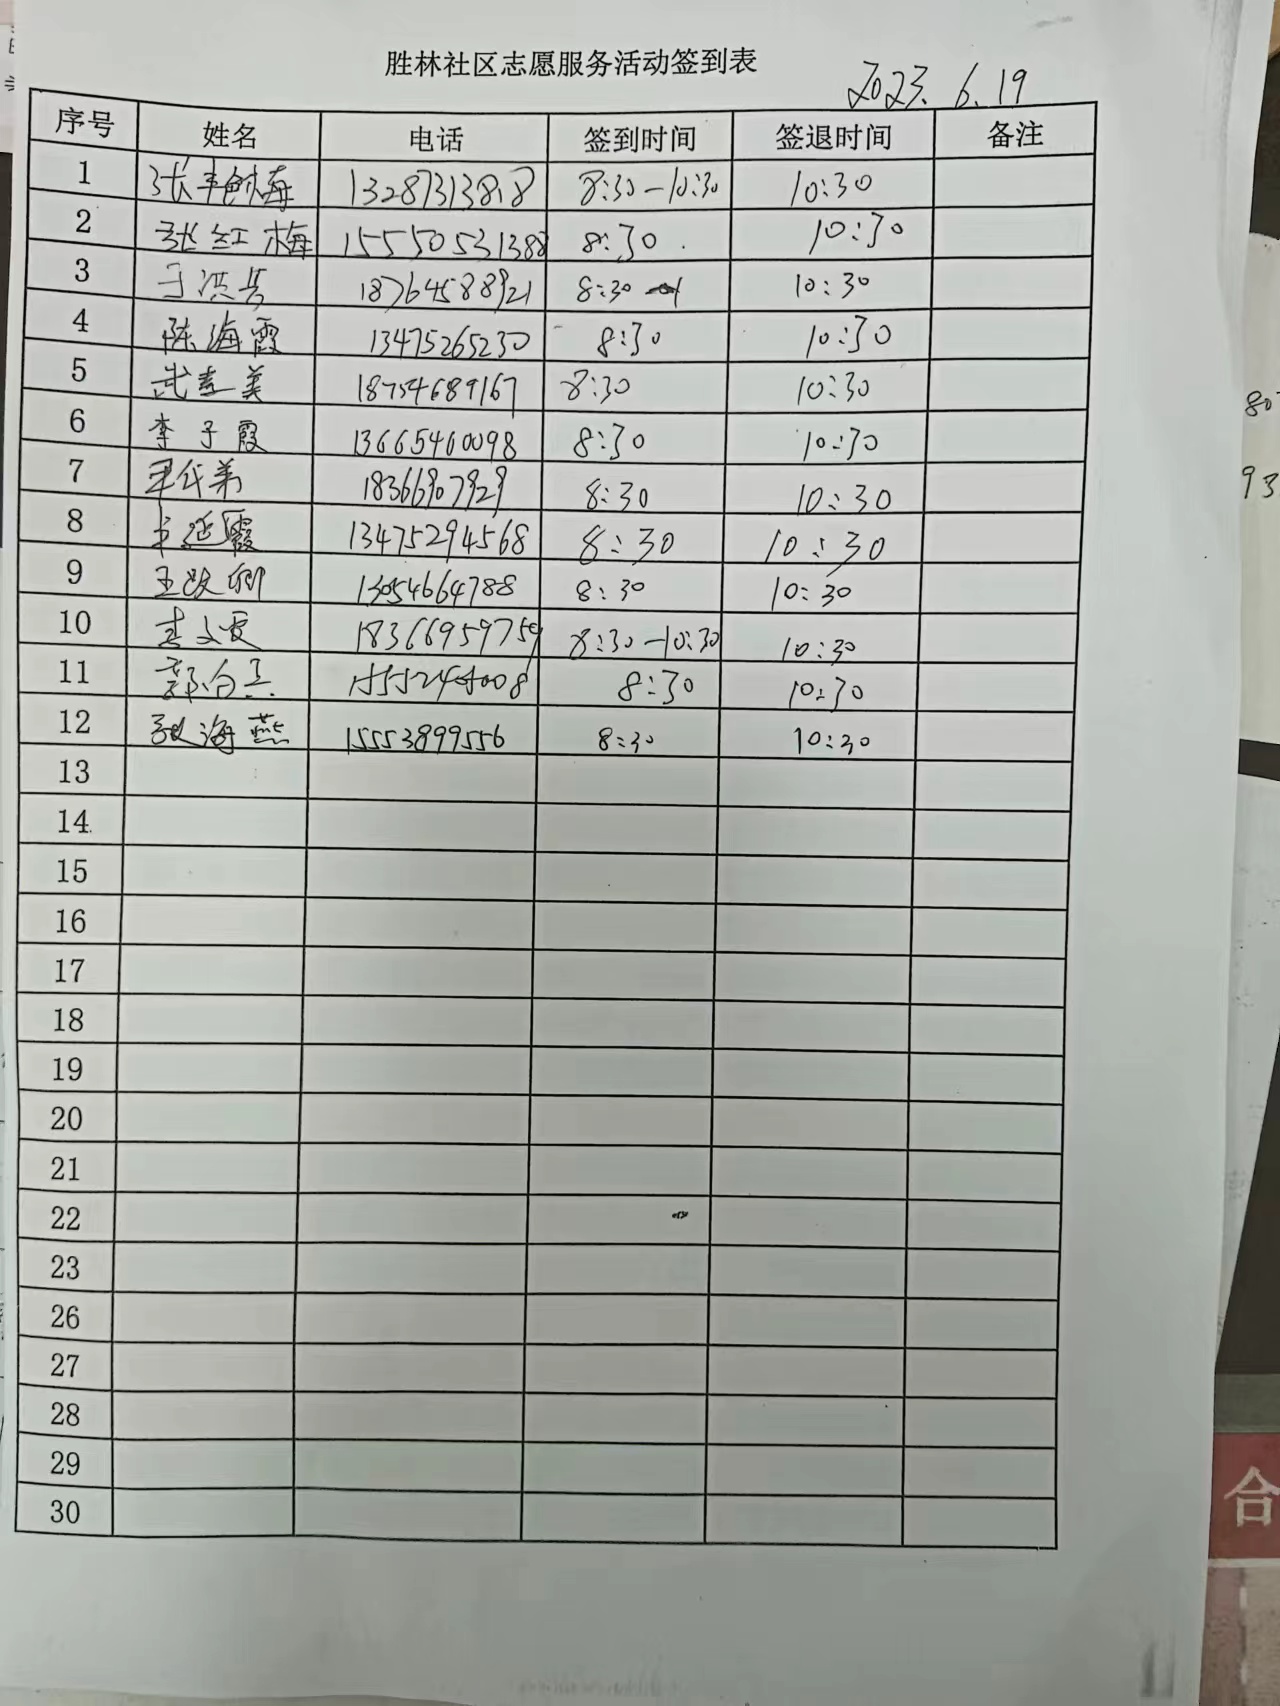 胜林社区志愿服务活动签到表
2023. 6. 19
序号 姓名 电话 签到时间 签退时间 备注
1 13287313818 8:30-10:30 10:30
2 张红梅 15550531388 8:30 10:30
3 于洪 18764588921 8:30 10:30
4 陈海霞 13475265230 8:30 10:30
5 武 美 18754689167 8:30 10:30
6 李子霞 13665460098 8:30 10:30
7 18366907929 8:30 10:30
8 延霞 13475294568 8:30 10:30
9 王 13054664788 8:30 10:30
10 18366959759 8:30-10:30 10:30
11 8:30 10:30
12 海燕 15553899556 8:30 10:30
13
14
15
16
17
18
19
20
21
22
23
26
27
28
29
30
80
93
合